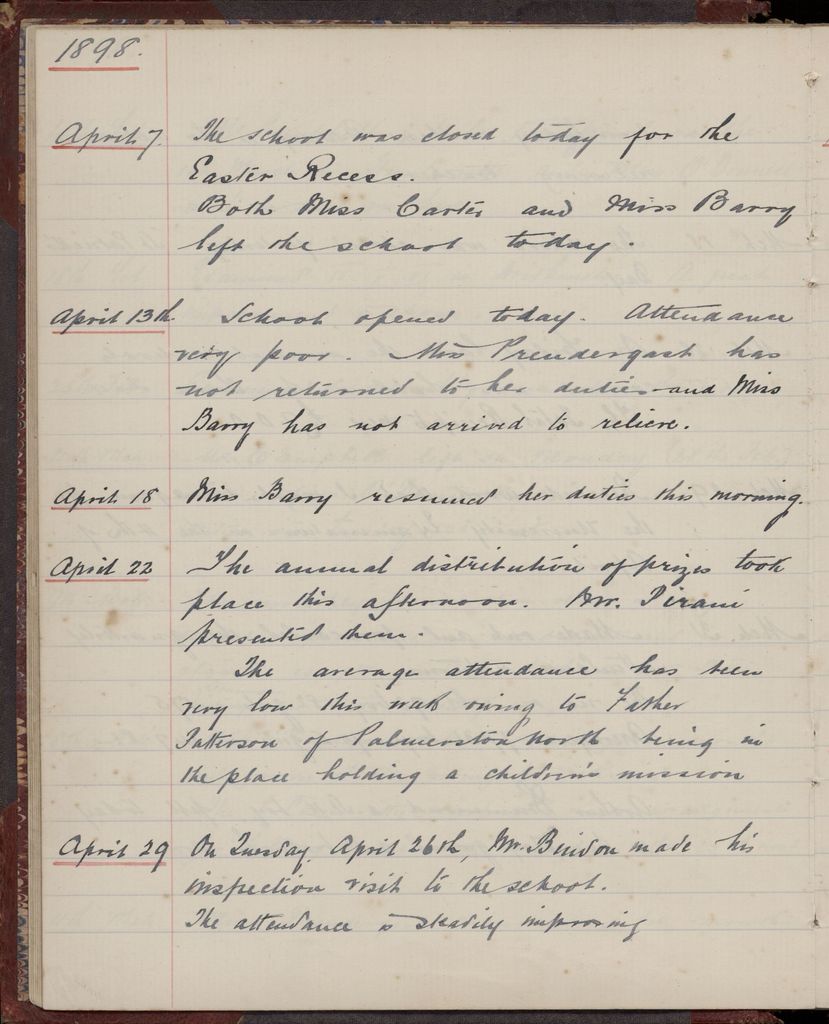 1898.
April 7. The school was closed today for the
Easter Recess.
Both Miss Carter and Miss Barry
left the school today.
April 13th. School opened today. Attendance
very poor. Miss Prendergast has
not returned to her duties and Miss
Barry has not arrived to relieve.
April 18 Miss Barry resumed her duties this morning.
April 22 The annual distribution of prizes took
place this afternoon. Mr. Pirani
presented them.
The average attendance has been
very low this week owing to Father
Patterson of Palmerston North being in
the place holding a children's mission
April 29 On Tuesday, April 26th, Mr. Bindon made his
inspection visit to the school.
The attendance is steadily improving